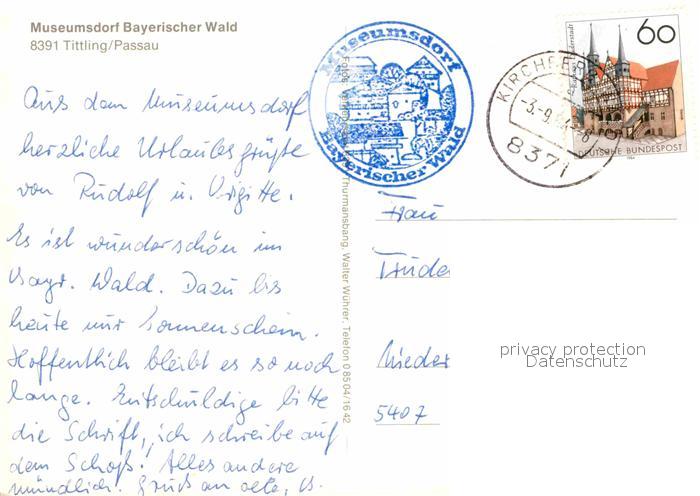 Museumsdorf Bayerischer Wald
8391 Tittling/Passau
Aus dem Museumsdorf
herzliche Urlaubsgrüße
von Rudolf u. Brigitte.
Es ist wunderschön im
Bayr. Wald. Dazu bis
heute nur Sonnenschein.
Hoffentlich bleibt es so noch
lange. Entschuldige bitte
die Schrift, ich schreibe auf
dem Schoß! Alles andere
mündlich. Gruß an
Museumsdorf
Bayerischer Wald
Thurmansbang, Walter Wührer, Telefon 08504/1642
KIRCHBERG
-3.-9.
8371
60
DEUTSCHE BUNDESPOST
1984
Frau
Trude
Nieder
5407
privacy protection
Datenschutz